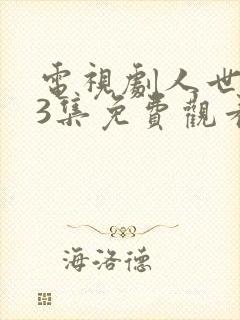 電視劇人世
3集免費觀看
海洛德